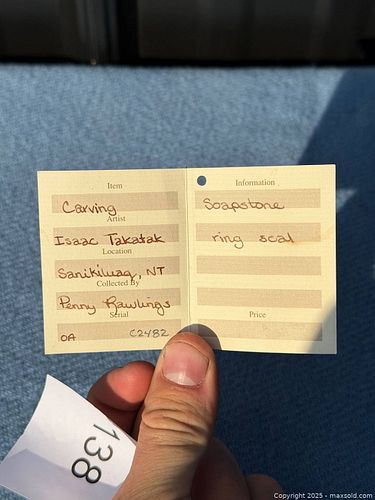 Item
Carving
Artist
Isaac Takatak
Location
Sanikiluaq, NT
Collected By
Penny Rawlings
Serial
OA C2482
Information
Soapstone
ring seal
Price
138
Copyright 2025 - maxsold.com